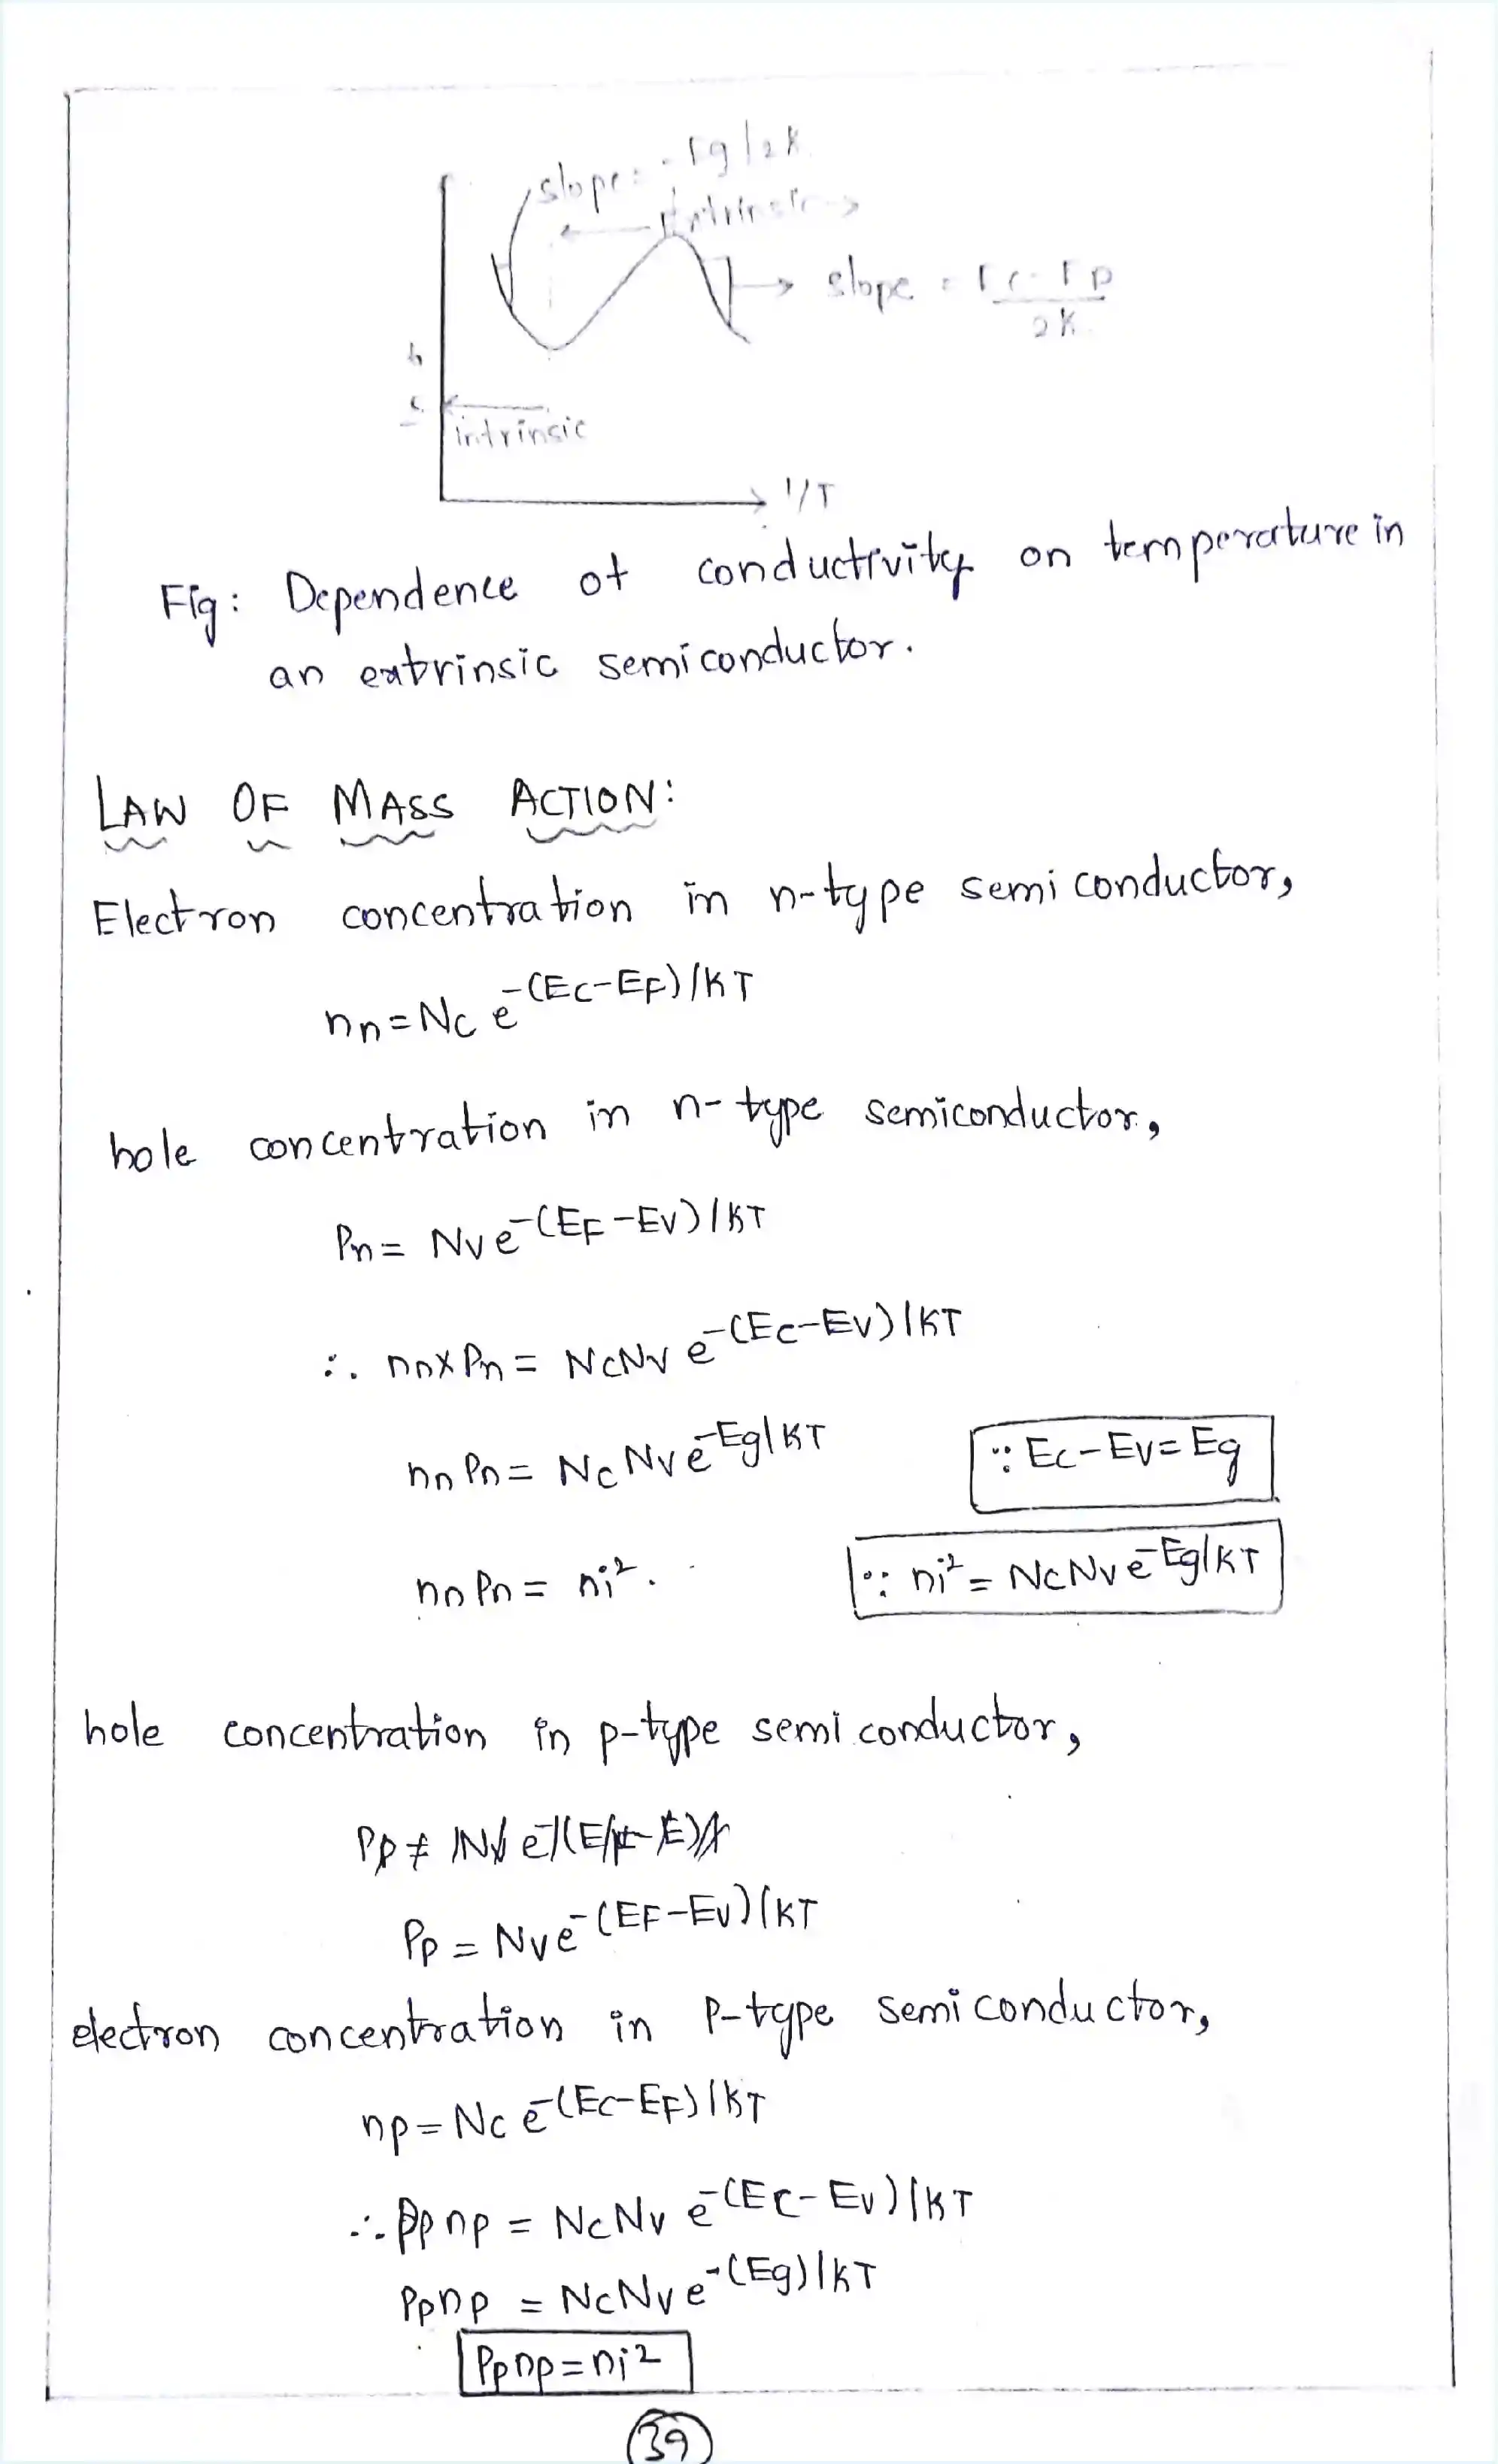 slope = -Eg/2K
Extrinsic
slope = Ec-ED
2K
intrinsic
1/T
Fig: Dependence of conductivity on temperature in
an extrinsic semiconductor.
LAW OF MASS ACTION:
Electron concentration in n-type semiconductor,
nn = Nc e^-(Ec-EF)/KT
hole concentration in n-type semiconductor,
Pn = Nv e^-(EF-Ev)/KT
∴ nn x Pn = NcNv e^-(Ec-Ev)/KT
nn Pn = Nc Nv e^-Eg/KT
∵ Ec-Ev = Eg
nn Pn = ni².
∵ ni² = NcNv e^-Eg/KT
hole concentration in p-type semiconductor,
Pp = Nv e^-(EF-Ev)/KT
electron concentration in P-type semiconductor,
np = Nc e^-(Ec-EF)/KT
∴ Pp np = NcNv e^-(Ec-Ev)/KT
Pp np = NcNv e^-(Eg)/KT
Pp np = ni²
39